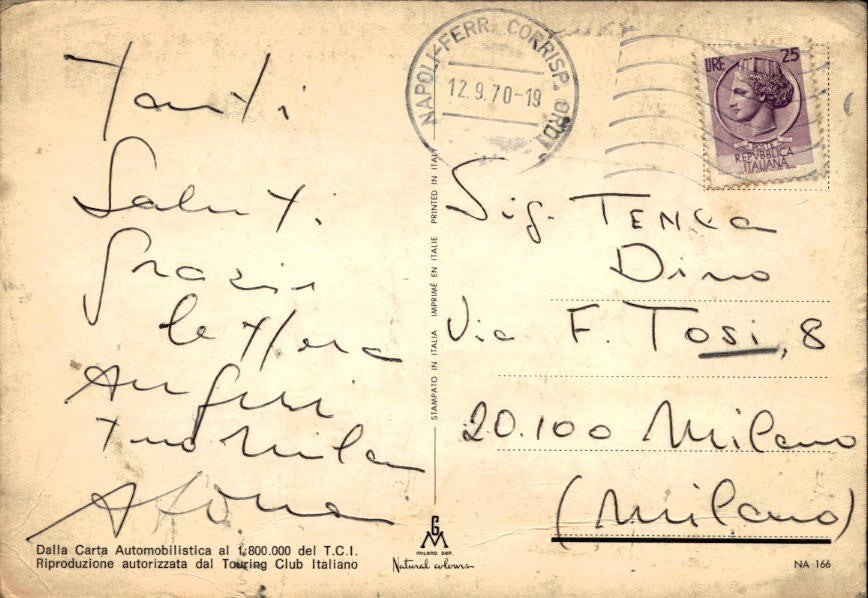 Tanti
Saluti.
Grazie
lettera
Auguri
tuo Milan
NAPOLI-FERR. CORRISP. ORD.
12.9.70-19
LIRE 25
POSTE
REPVBBLICA
ITALIANA
Sig. TENCA
Dino
Via F. Tosi, 8
20.100 Milano
(Milano)
STAMPATO IN ITALIA IMPRIMÉ EN ITALIE PRINTED IN ITALY
Dalla Carta Automobilistica al 1:800.000 del T.C.I.
Riproduzione autorizzata dal Touring Club Italiano
GM
MILANO DEP.
Natural colours
NA 166